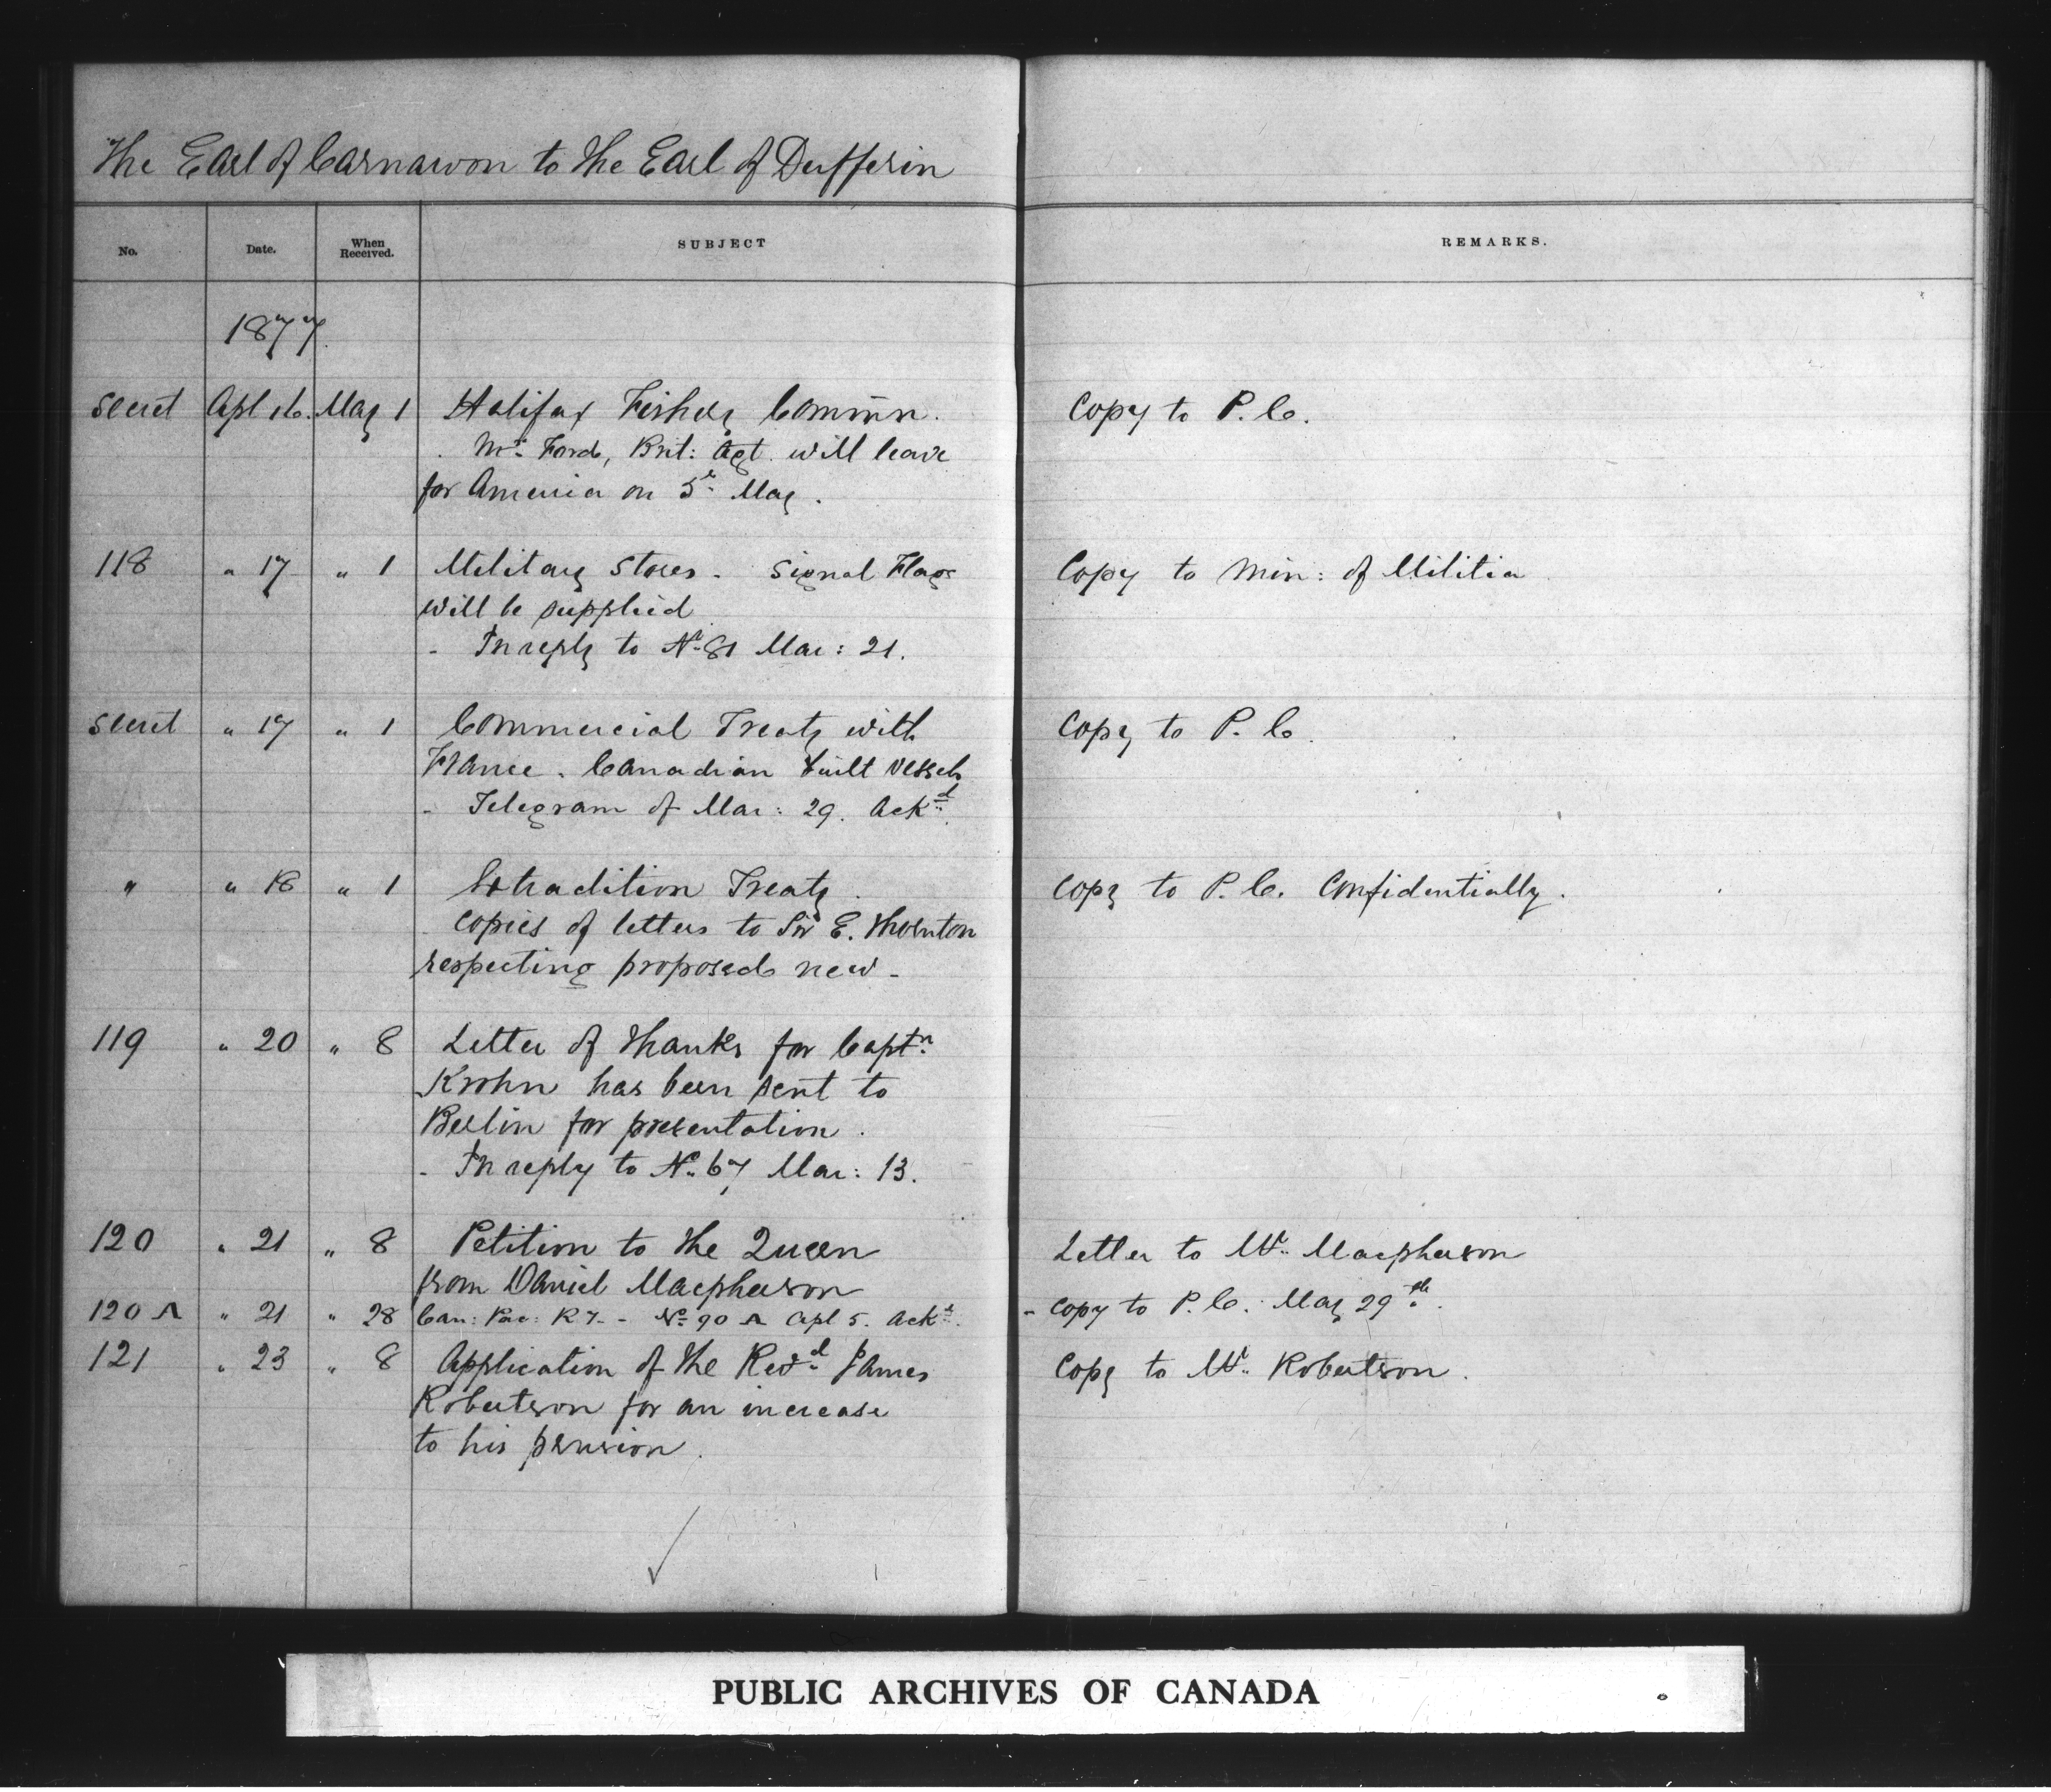 The Earl of Carnarvon to the Earl of Dufferin
No. Date. When Received. SUBJECT REMARKS.
1877
Secret Apl 16. May 1 Halifax Fishery Commn. Copy to P. C.
Mr. Ford, Brit: Agt. will leave
for America on 5th May.
118 " 17 " 1 Military Stores - Signal Flags Copy to Min: of Militia
will be supplied
- In reply to No. 81 Mar: 21.
Secret " 17 " 1 Commercial Treaty with Copy to P. C.
France. Canadian built vessels
- Telegram of Mar: 29. Ackd.
" " 18 " 1 Extradition Treaty. Copy to P. C. Confidentially.
Copies of letters to Sir E. Thornton
respecting proposed new -
119 " 20 " 8 Letter of thanks for Captn.
Krohn has been sent to
Berlin for presentation.
- In reply to No. 67 Mar: 13.
120 " 21 " 8 Petition to the Queen Letter to Mr. Macpherson
from Daniel Macpherson
120 A " 21 " 28 Can: Pac: Ry. - No. 90 A Apl 5. Ackd. - Copy to P. C. May 29th.
121 " 23 " 8 Application of the Revd. James Copy to Mr. Robertson.
Robertson for an increase
to his pension.
PUBLIC ARCHIVES OF CANADA